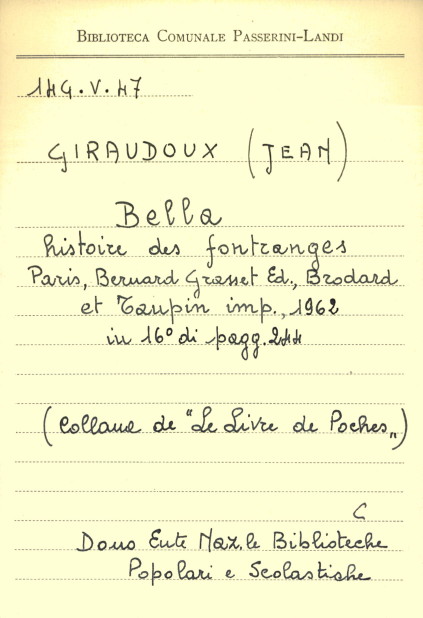 BIBLIOTECA COMUNALE PASSERINI-LANDI
144.V.47
GIRAUDOUX (JEAN)
Bella
histoire des fontranges
Paris, Bernard Grasset Ed., Brodard
et Taupin imp., 1962
in 16° di pagg. 244
(Collana de "Le Livre de Poches„)
C
Dono Ente Naz.le Biblioteche
Popolari e Scolastiche